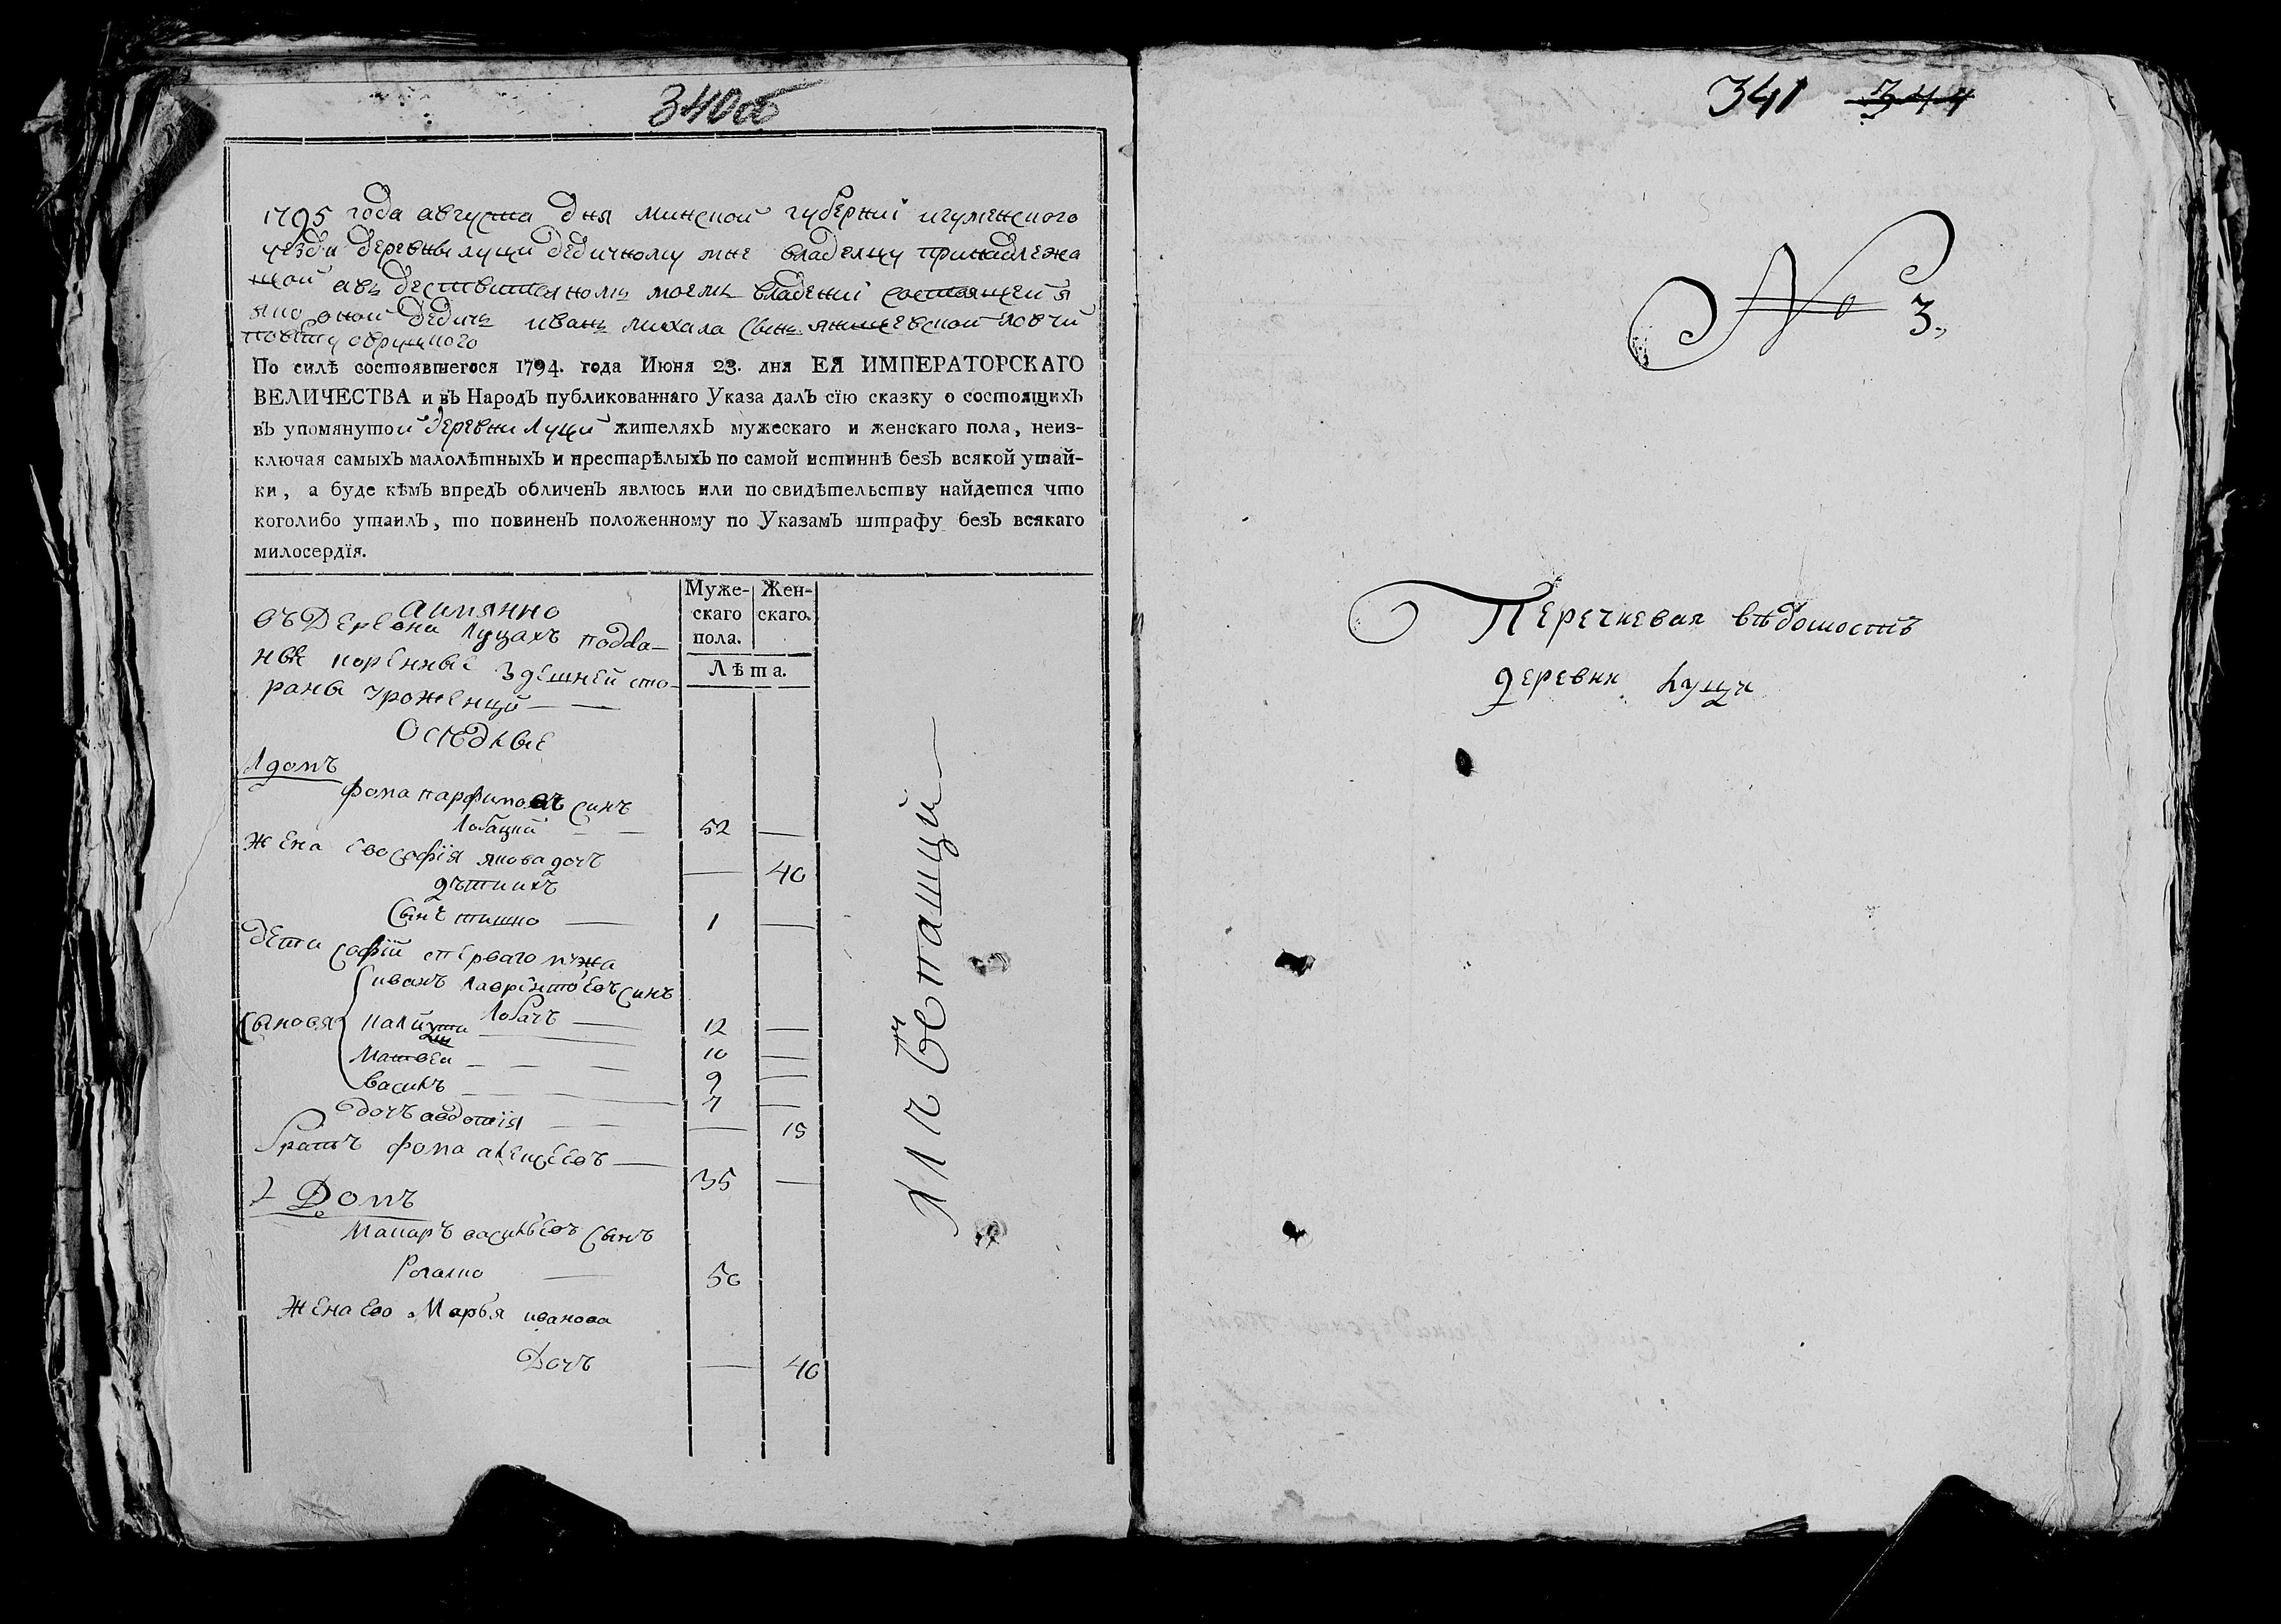 340об
1795 года августа дня минской губерниі игуменского
уезда деревни луци дедичному мне владелцу принадлежа
щой авъ деиствителномъ моемъ владениі состоящей я
яко оной дедичъ иванъ михала сынъ ловчи
повету овруцкого
По силѣ состоявшегося 1794. года Июня 23. дня ЕЯ ИМПЕРАТОРСКАГО
ВЕЛИЧЕСТВА и въ Народъ публикованнаго Указа далъ сїю сказку о состоящихъ
въ упомянутой деревни Луци жителяхъ мужескаго и женскаго пола, неиз-
ключая самыхъ малолѣтныхъ и престарѣлыхъ по самой истиннѣ безъ всякой утай-
ки, а буде кѣмъ впредъ обличенъ явлюсь или по свидѣтельству найдется что
коголибо утаилъ, то повиненъ положенному по Указамъ штрафу безъ всякаго
милосердїя.
Муже-скаго пола. Жен-скаго.
Лѣта.
аимянно
въ Деревни Луцахъ подда-
ные коренные здешней сто-
раны уроженцы
Оседлые
1 домъ
фома парфимовъ синъ
Лобацкий 52 —
жена ево софїя якова дочъ — 40
дети ихъ
Сынъ тишко — 1 —
дети софїй сперваго мужа
Сыновя
иванъ лаврентоевъ синъ
Лобачъ — 12 —
10 —
Матвеи — 9 —
василъ — 7 —
дочъ авдотїя — 15
братъ фома алексеевъ — 35 —
2 Домъ
Макаръ василъевъ Сынъ
50
Жена Ево Маръя иванова
Дочъ — 40
341 344
No 3.
Перечневая вѣдомостъ
деревни луци